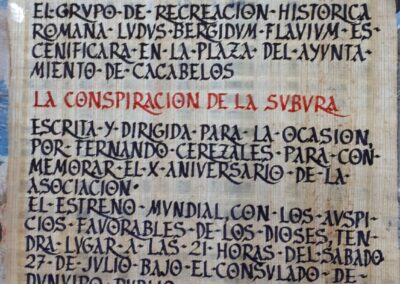 EL·GRVPO·DE·RECREACION·HISTORICA
ROMANA·LVDVS·BERGIDVM·FLAVIVM·ES-
CENIFICARA·EN·LA·PLAZA·DEL·AYVNTA-
MIENTO·DE·CACABELOS
LA CONSPIRACION DE LA SVBVRA
ESCRITA·Y·DIRIGIDA·PARA·LA·OCASION,
POR·FERNANDO·CEREZALES·PARA·CON-
MEMORAR·EL·X·ANIVERSARIO·DE·LA
ASOCIACION·
EL·ESTRENO·MVNDIAL,CON·LOS·AVSPI-
CIOS·FAVORABLES·DE·LOS·DIOSES,TEN-
DRA·LVGAR·A·LAS·21·HORAS·DEL·SABADO
27·DE·JVLIO·BAJO·EL·CONSVLADO·DE·